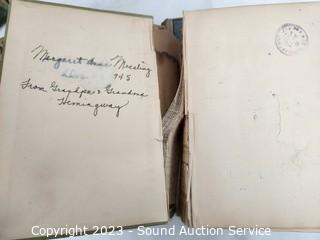 Margaret Anne Nesting
945
From Grandpa & Grandma
Hemingway
Copyright 2023 - Sound Auction Service